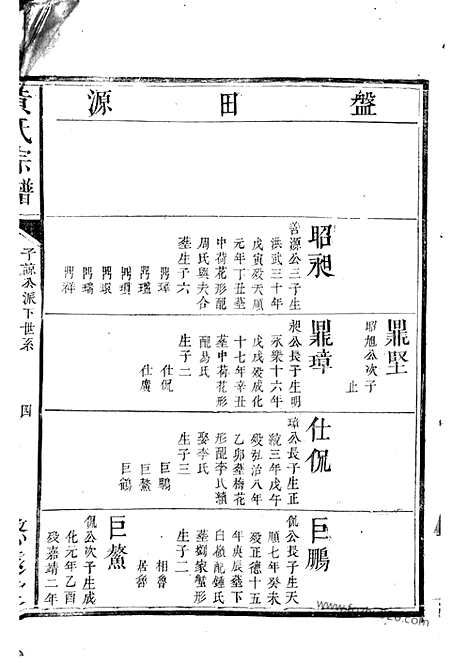 盤田源
昭昶
善源公三子生
洪武三十年
戊寅殁天順
元年丁丑墓
中荷花形配
周氏與夫合
墓生子六
鼎璋
鼎瑞
鼎祥
鼎堅
昭旭公次子
止
鼎璋
昶公長子生明
永樂十六年
戊戌殁成化
十七年辛丑
墓中荷花形
配易氏
生子二
仕侃
仕廣
仕侃
璋公長子生正
統三年戊午
殁弘治八年
乙卯墓梅花
形配李氏續
娶李氏
生子三
巨鵬
巨鰲
巨鶴
巨鵬
侃公長子生天
順七年癸未
殁正德十五
年庚辰墓下
白嶺配鍾氏
墓鄭家蟹形
生子二
相魯
居魯
巨鰲
侃公次子生成
化元年乙酉
殁嘉靖二年
黃氏宗譜
子諒公派下世系
四